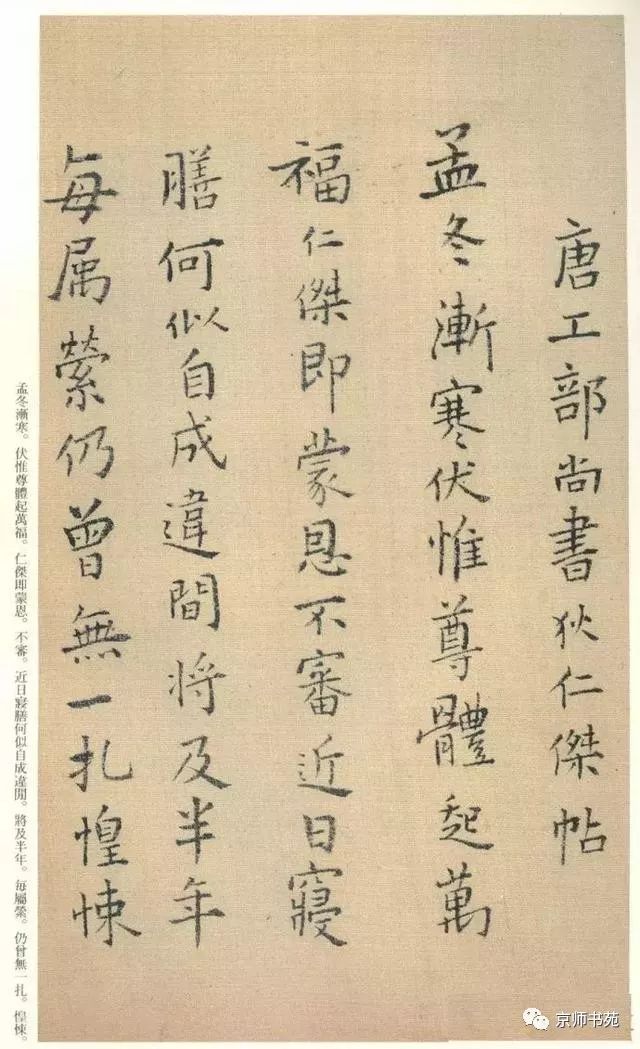 唐工部尚書狄仁傑帖
孟冬漸寒伏惟尊體起萬
福仁傑即蒙恩不審近日寢
膳何似自成違間将及半年
每属縈仍曾無一扎惶悚
孟冬漸寒。伏惟尊體起萬福。仁傑即蒙恩。不審。近日寢膳何似自成違閒。將及半年。每屬縈。仍曾無一扎。惶悚。
京师书苑